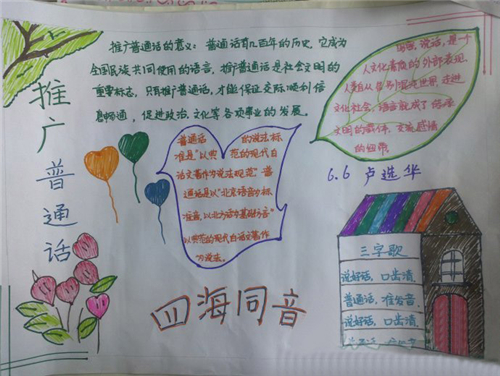 推广普通话
推广普通话的意义：普通话有几百年的历史，它成为
全国民族共同使用的语言，推广普通话是社会文明的
重要标志，只有推广普通话，才能保证交际顺利信
息畅通，促进政治、文化等各项事业的发展。
普通话的说法标
准是"以典范的现代白
话文著作为说法规范"普
通话是以"北京语音为标
准音，以北方话为基础方言"
以典范的现代白话文著作
为说法。
说话，是一个
人文化素质的外部表现，
人类自从
文化社会，语言就成了
文明的载体，交流感情
的纽带
6.6 卢选华
三字歌
说好话，口出溃
普通话，准发音
说好话，口出溃
四海同音